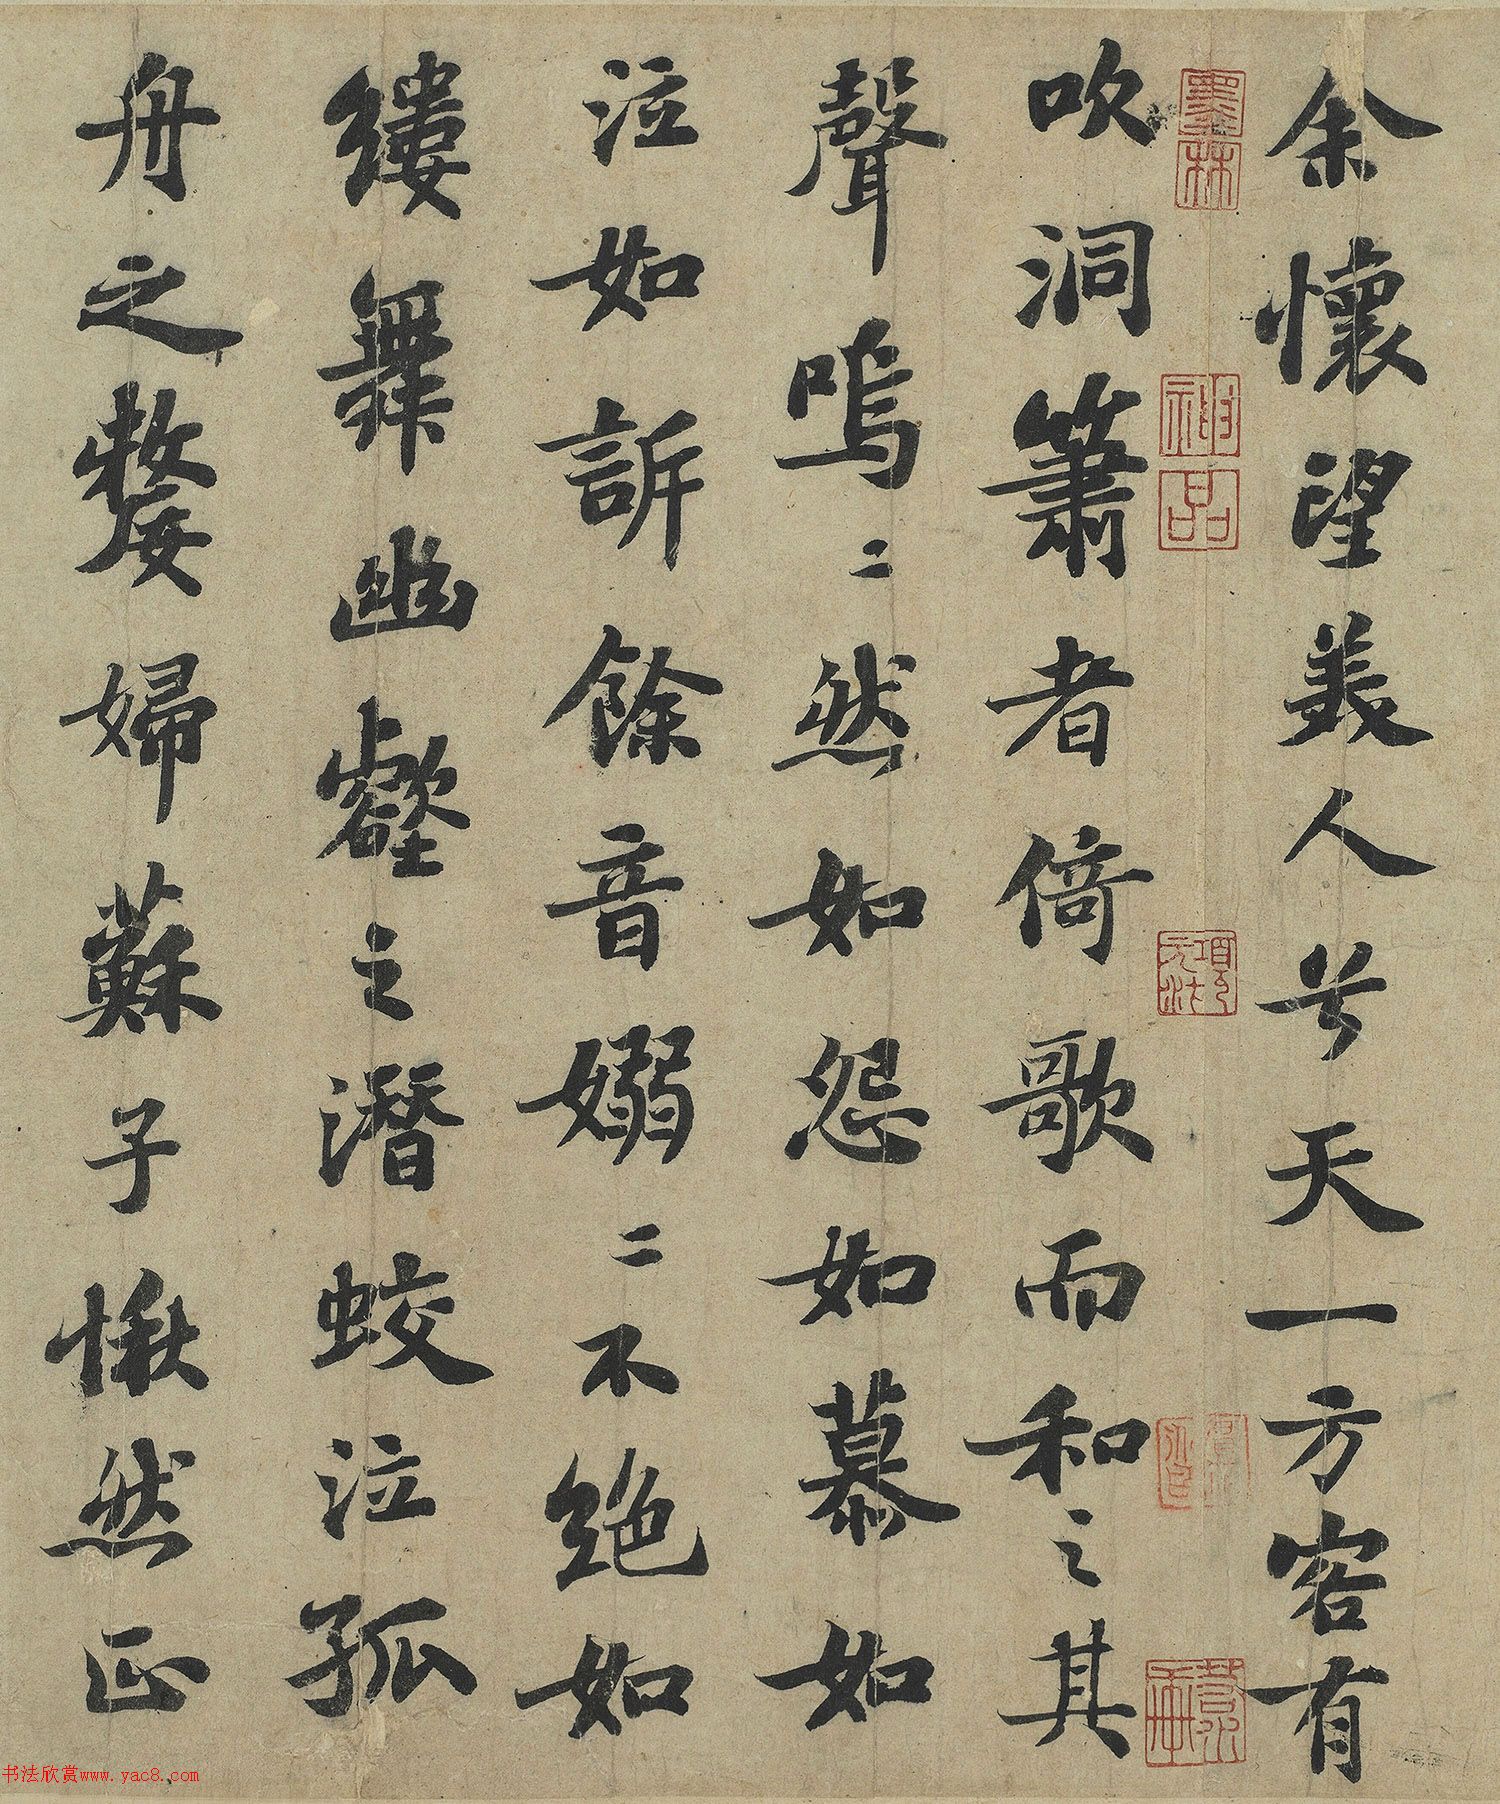 余懷望美人兮天一方客有
吹洞簫者倚歌而和之其
聲嗚〻然如怨如慕如
泣如訴餘音嫋〻不絕如
縷舞幽壑之潛蛟泣孤
舟之嫠婦蘇子愀然正
墨林
神品
項元汴
书法欣赏www.yac8.com